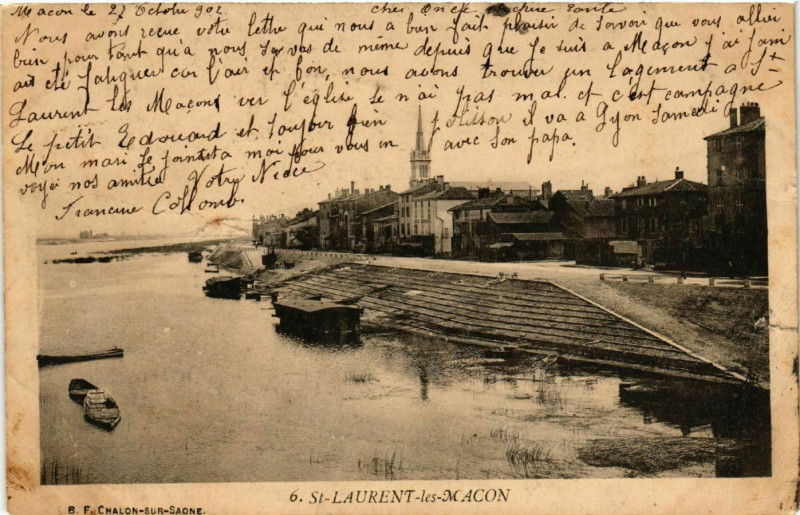 Macon le 27 Octobre 902 cher Oncle et chère Tante
Nous avons reçue votre lettre qui nous a bien fait plaisir de savoir que vous allié
bien pour tant qu'a nous sa vas de même depuis que je suis a Maçon j'ai jam
ait été fatiguer car l'air et bon, nous avons trouver un logement a St
Laurent les Maçons ver l'église je n'ai pas mal et c'est campagne
Le petit Edouard et toujour bien il va a Lyon samedi
Mon mari se joint a moi pour vous en avec son papa.
voyé nos amitié Votre Niece
Francine Collomb.
6. St-LAURENT-les-MACON
B. F. CHALON-SUR-SAONE.